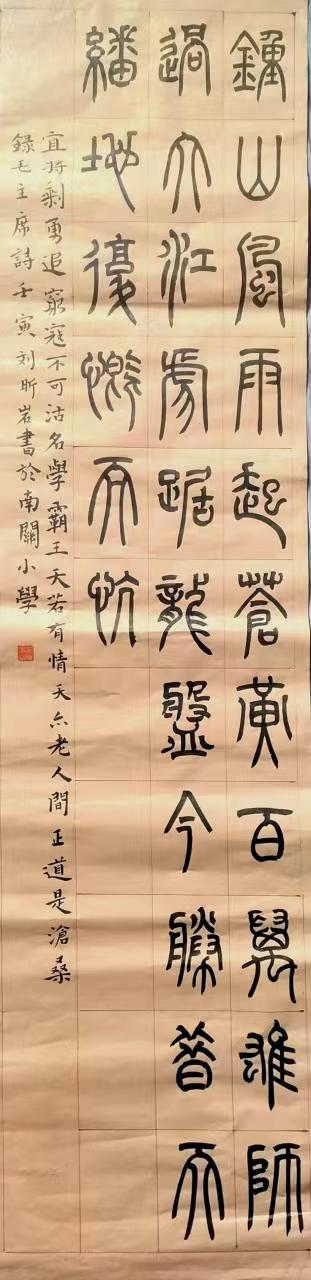 鍾山風雨起蒼黃百萬雄師
過大江虎踞龍盤今勝昔天
繙地復慨而忼
宜将剩勇追窮寇不可沽名學霸王天若有情天亦老人間正道是滄桑
録毛主席詩壬寅刘昕岩書於南關小學